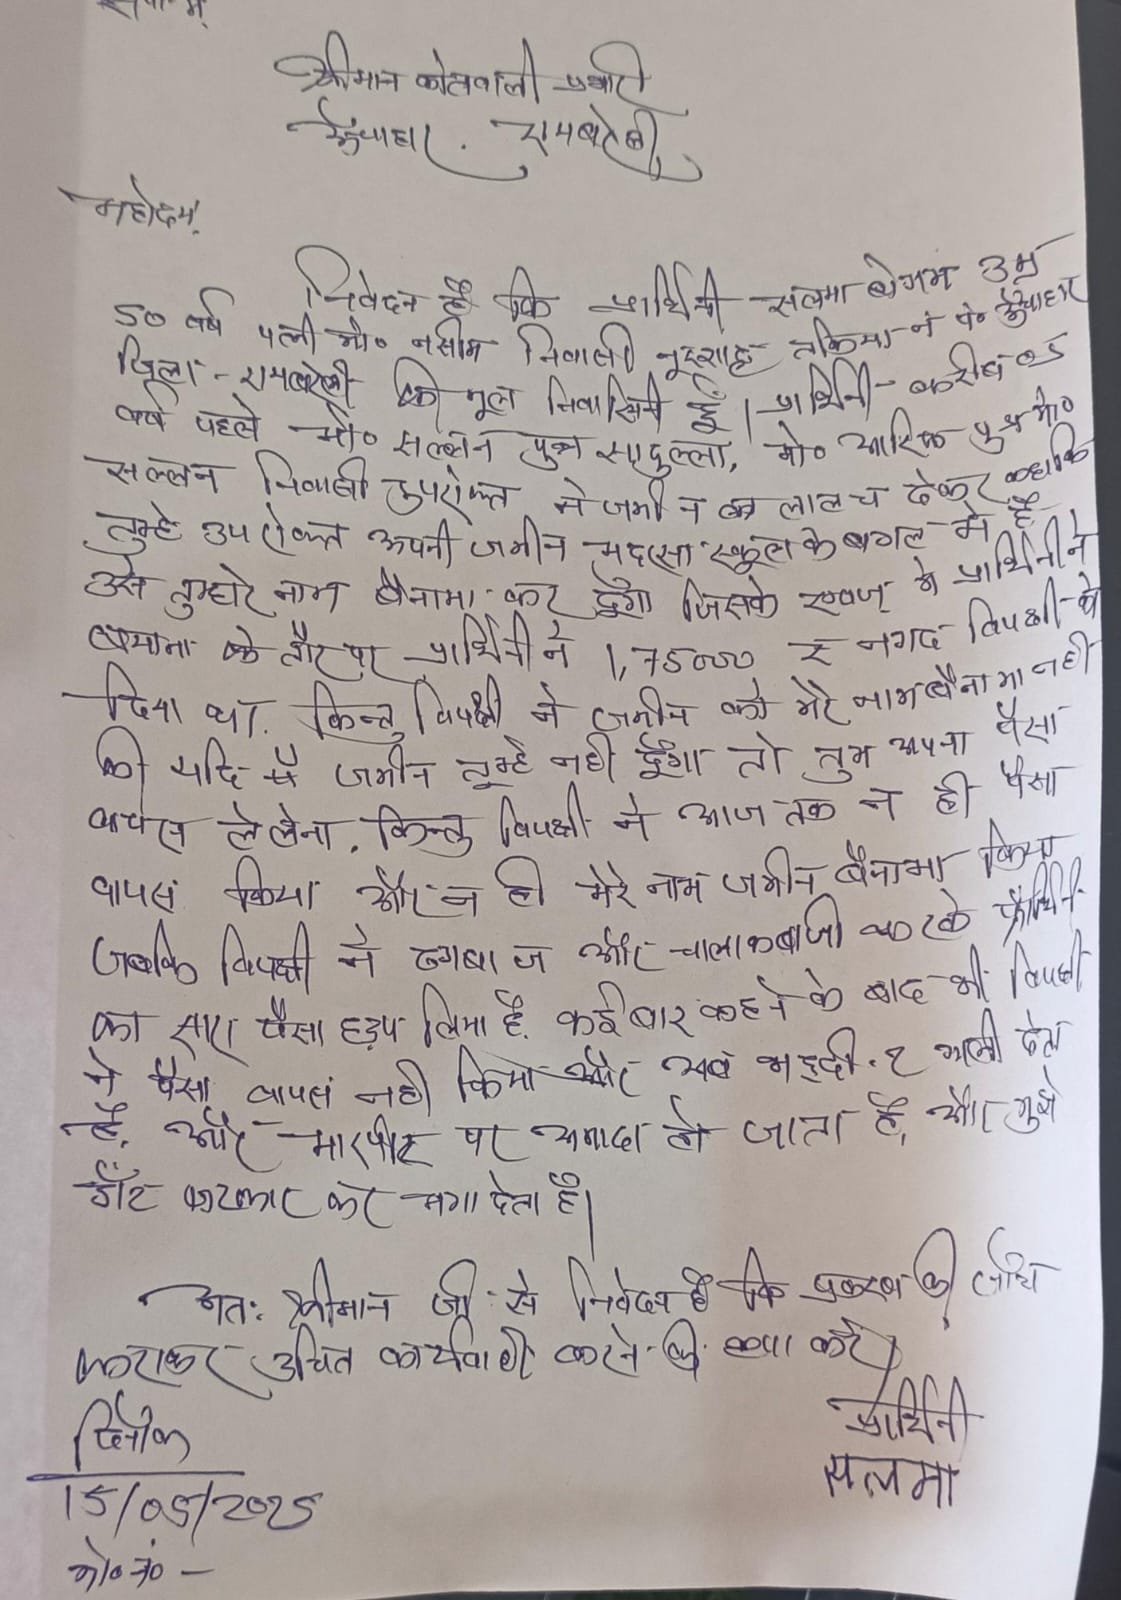 सेवा में,
श्रीमान कोतवाली प्रभारी
ऊँचाहार. रायबरेली
महोदय,
निवेदन है कि प्रार्थिनी सलमा बेगम उम्र
50 वर्ष पत्नी मो० नसीम निवासी नूरशाह तकिया नं पो० ऊँचाहार
जिला - रायबरेली की मूल निवासिनी हूँ। प्रार्थिनी - करीब
वर्ष पहले मो० सल्लन पुत्र सादुल्ला, मो० आरिफ पुत्र मो०
सल्लन निवासी उपरोक्त ने जमीन का लालच देकर कहा कि
तुम्हे उपरोक्त अपनी जमीन मदरसा स्कूल के बगल में है
उसे तुम्हारे नाम बैनामा कर दूँगा जिसके एवज में प्रार्थिनी ने
बयाना के तौर पर प्रार्थिनी ने 1,75000 रु नगद विपक्षी को
दिया था. किन्तु विपक्षी ने जमीन को मेरे नाम बैनामा नही
की यदि मैं जमीन तुम्हे नही दूँगा तो तुम अपना पैसा
वापस ले लेना. किन्तु विपक्षी ने आज तक न ही पैसा
वापस किया और न ही मेरे नाम जमीन बैनामा किया
जबकि विपक्षी ने दगाबाज और चालाकबाजी करके प्रार्थिनी
का सारा पैसा हड़प लिया है. कई बार कहने के बाद भी विपक्षी
ने पैसा वापस नही किया और अब भद्दी-2 गाली देता
है, और मारपीट पर अमादा हो जाता है, और मुझे
डाँट फटकार कर भगा देता है।
अत: श्रीमान जी से निवेदन है कि प्रकरण की जाँच
कराकर उचित कार्यवाही करने की कृपा करें।
प्रार्थिनी
सलमा
दिनाँक
15/05/2025
मो० नं० -